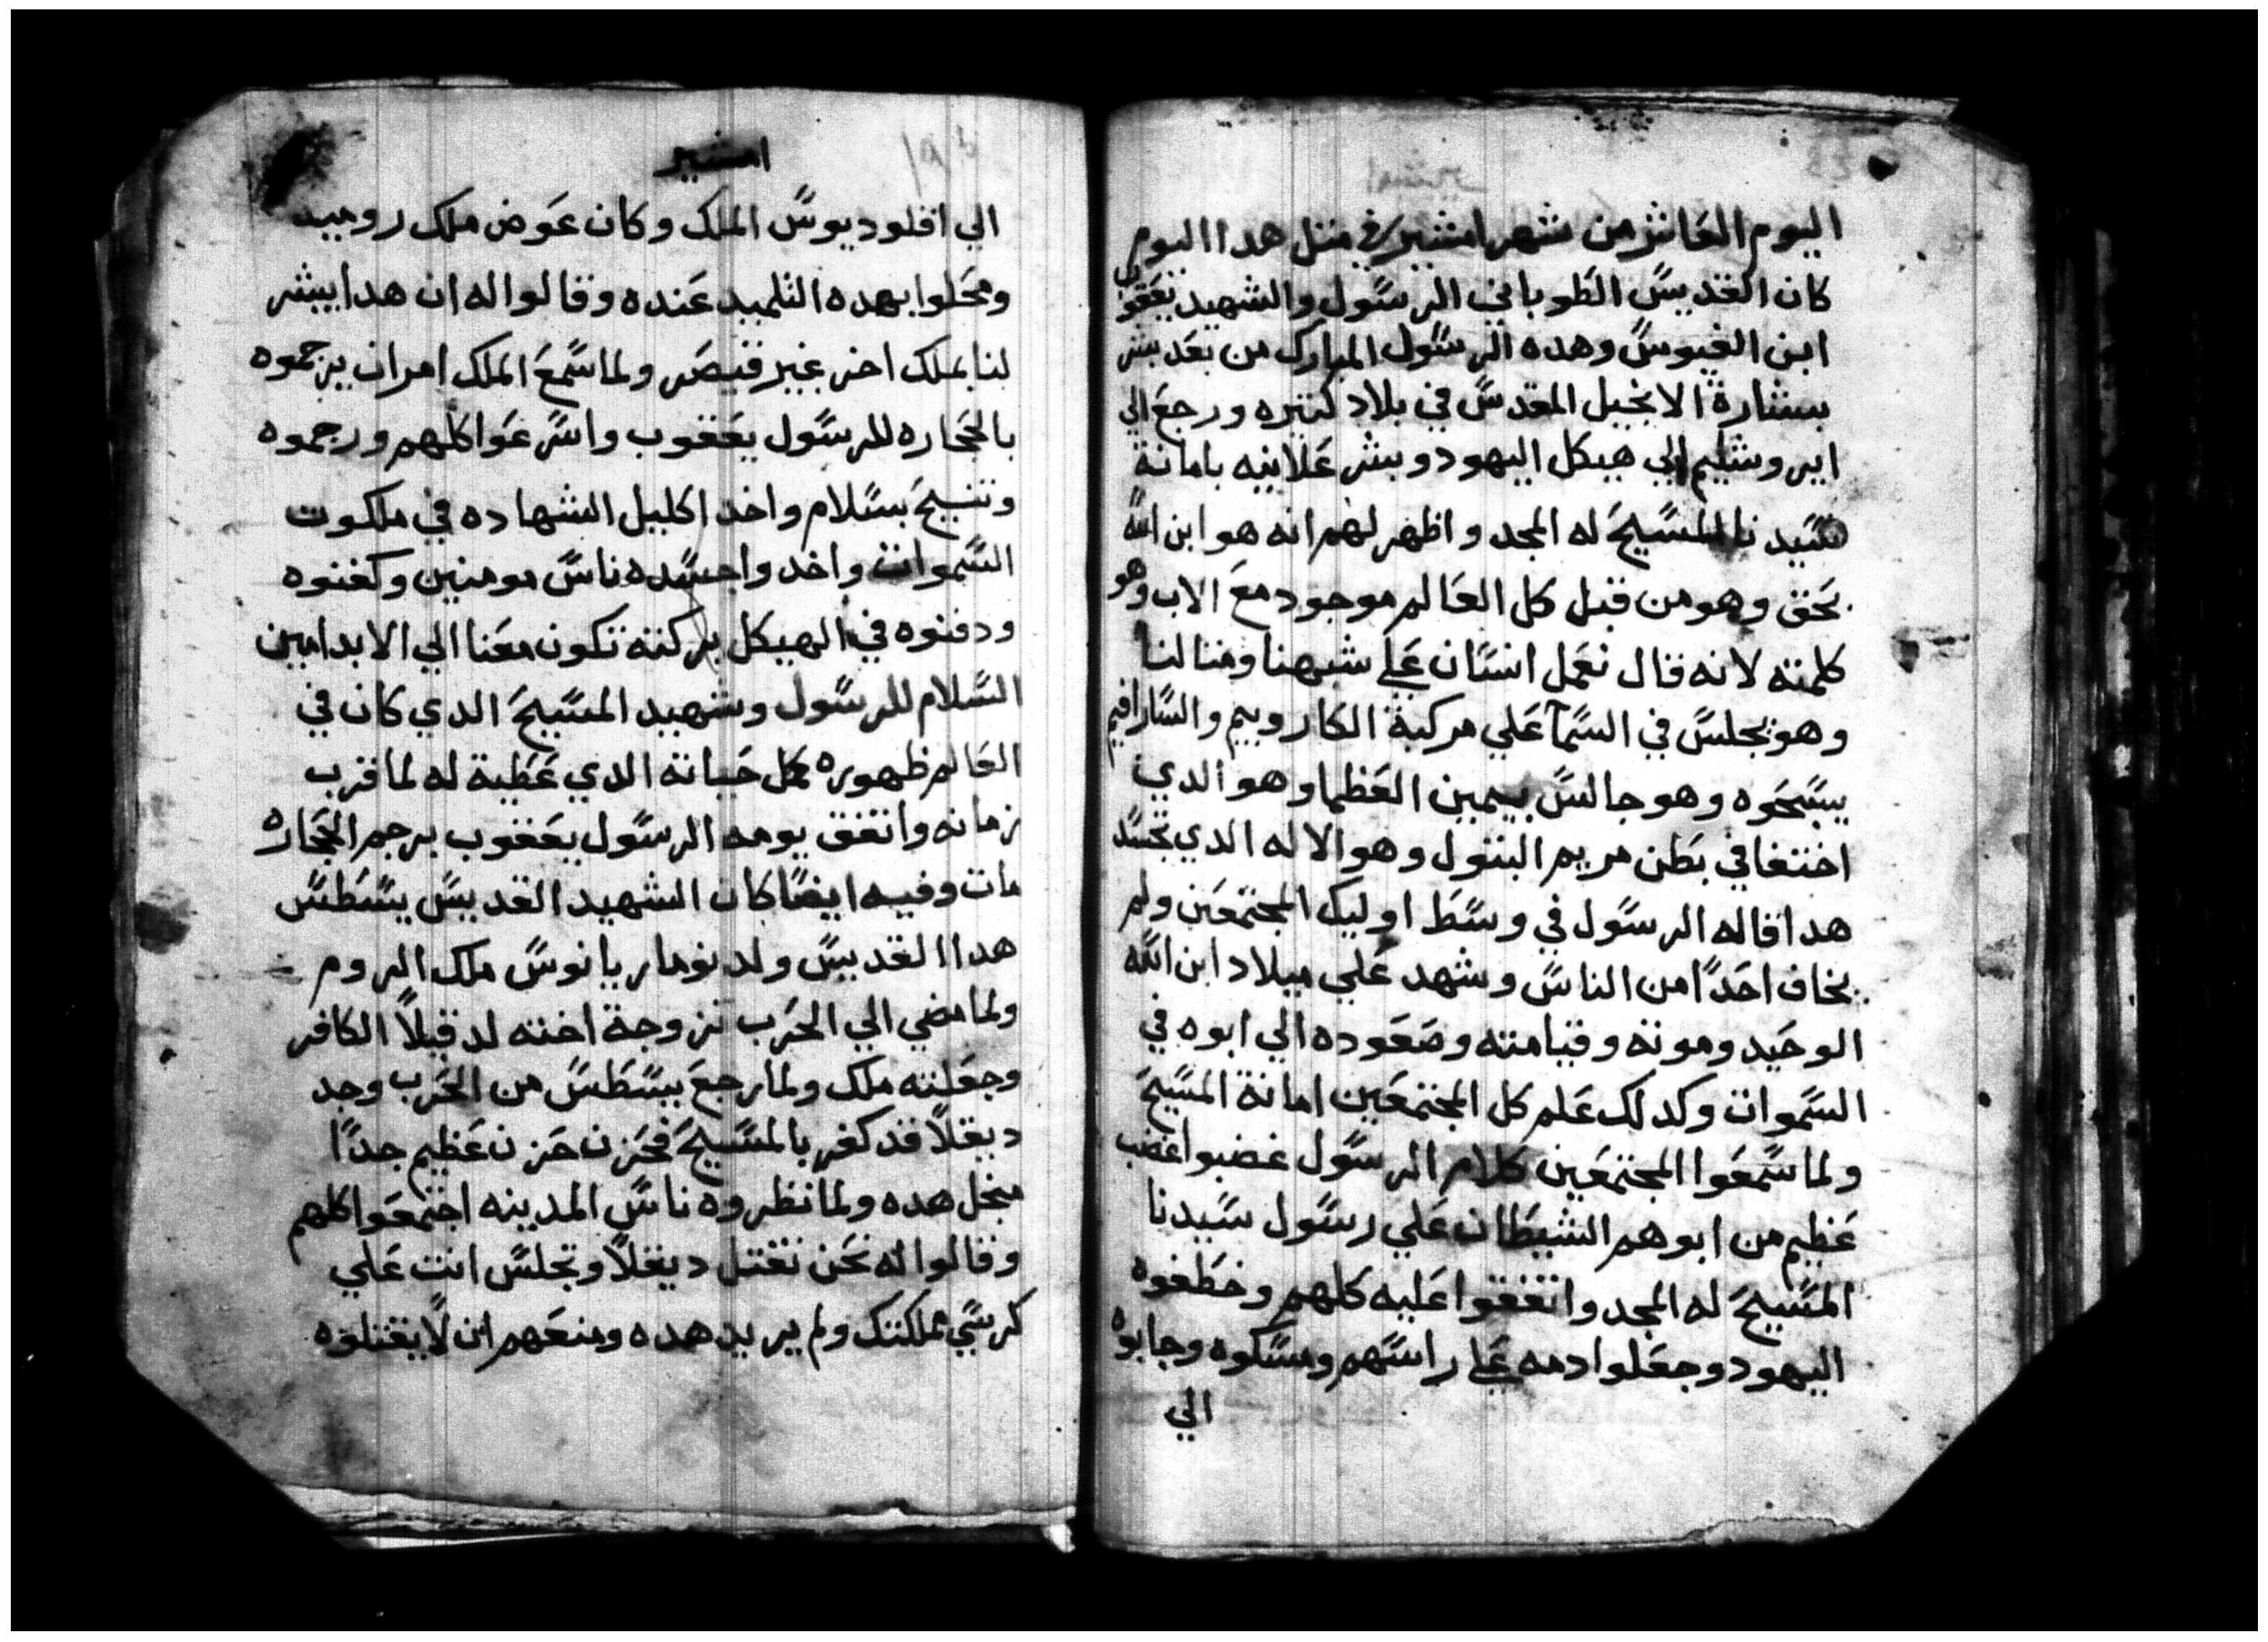 اليوم العاشر من شهر امشير في مثل هدا اليوم
كان القديس الطوباني الرسول والشهيد يعقوب
ابن الفيوس وهده الرسول المبارك من بعد بشر
ببشارة الانجيل المقدس في بلاد كتيره ورجع الي
ايروشليم الي هيكل اليهود وبشر علانيه بامانة
سيدنا المسيح له المجد واظهر لهم انه هو ابن الله
بحق وهو من قبل كل العالم موجود مع الاب وهو
كلمته لانه قال نعمل انسان علي شبهنا ومتالنا
وهو يجلس في السمآ علي مركبة الكاروبيم والسارافيم
يسبحوه وهو جالس بيمين العظما وهو الدي
اختفا في بطن مريم البتول وهو الاله الدي تجسد
هدا قاله الرسول في وسط اوليك المجتمعين ولم
يخاف احدًا من الناس وشهد علي ميلاد ابن الله
الوحيد وموته وقيامته وصعوده الي ابوه في
السموات وكدلك علم كل المجتمعين امانة المسيح
ولما سمعوا المجتمعين كلام الرسول غضبوا غضب
عظيم من ابوهم الشيطان علي رسول سيدنا
المسيح له المجد واتفقوا عليه كلهم وخطفوه
اليهود وجعلوا دمه علي راسهم ومسكوه وجابوه
الي
امشير
الي اقلوديوس الملك وكان عوض ملك روميه
ومحلوا بهده التلميد عنده وقالوا له ان هدا يبشر
لنا بملك اخر غير قيصر ولما سمع الملك امر ان يرجموه
بالحجاره للرسول يعقوب واسرعوا كلهم ورجموه
وتنيح بسلام واخد اكليل الشهاده في ملكوت
السموات واخدوا جسده ناس مومنين وكفنوه
ودفنوه في الهيكل بركته تكون معنا الي الابد امين
السلام للرسول وشهيد المسيح الدي كان في
العالم ظهوره كمل حياته الدي عطية له لما قرب
زمانه واتفق يومه الرسول يعقوب برجم الحجاره
مات وفيه ايضًا كان الشهيد القديس يسطس
هدا القديس ولد نوماريانوس ملك الروم
ولما مضي الي الحرب تزوجة اخته لدقيلاً الكافر
وجعلته ملك ولما رجع يسطس من الحرب وجد
ديقلاً قد كفر بالمسيح فحزن حزن عظيم جدًا
منجل هده ولما نظروه ناس المدينه اجتمعوا كلهم
وقالوا له نحن نقتل ديقلاً وتجلس انت علي
كرسي مملكتك ولم يريد هده ومنعهم ان لا يقتلوه